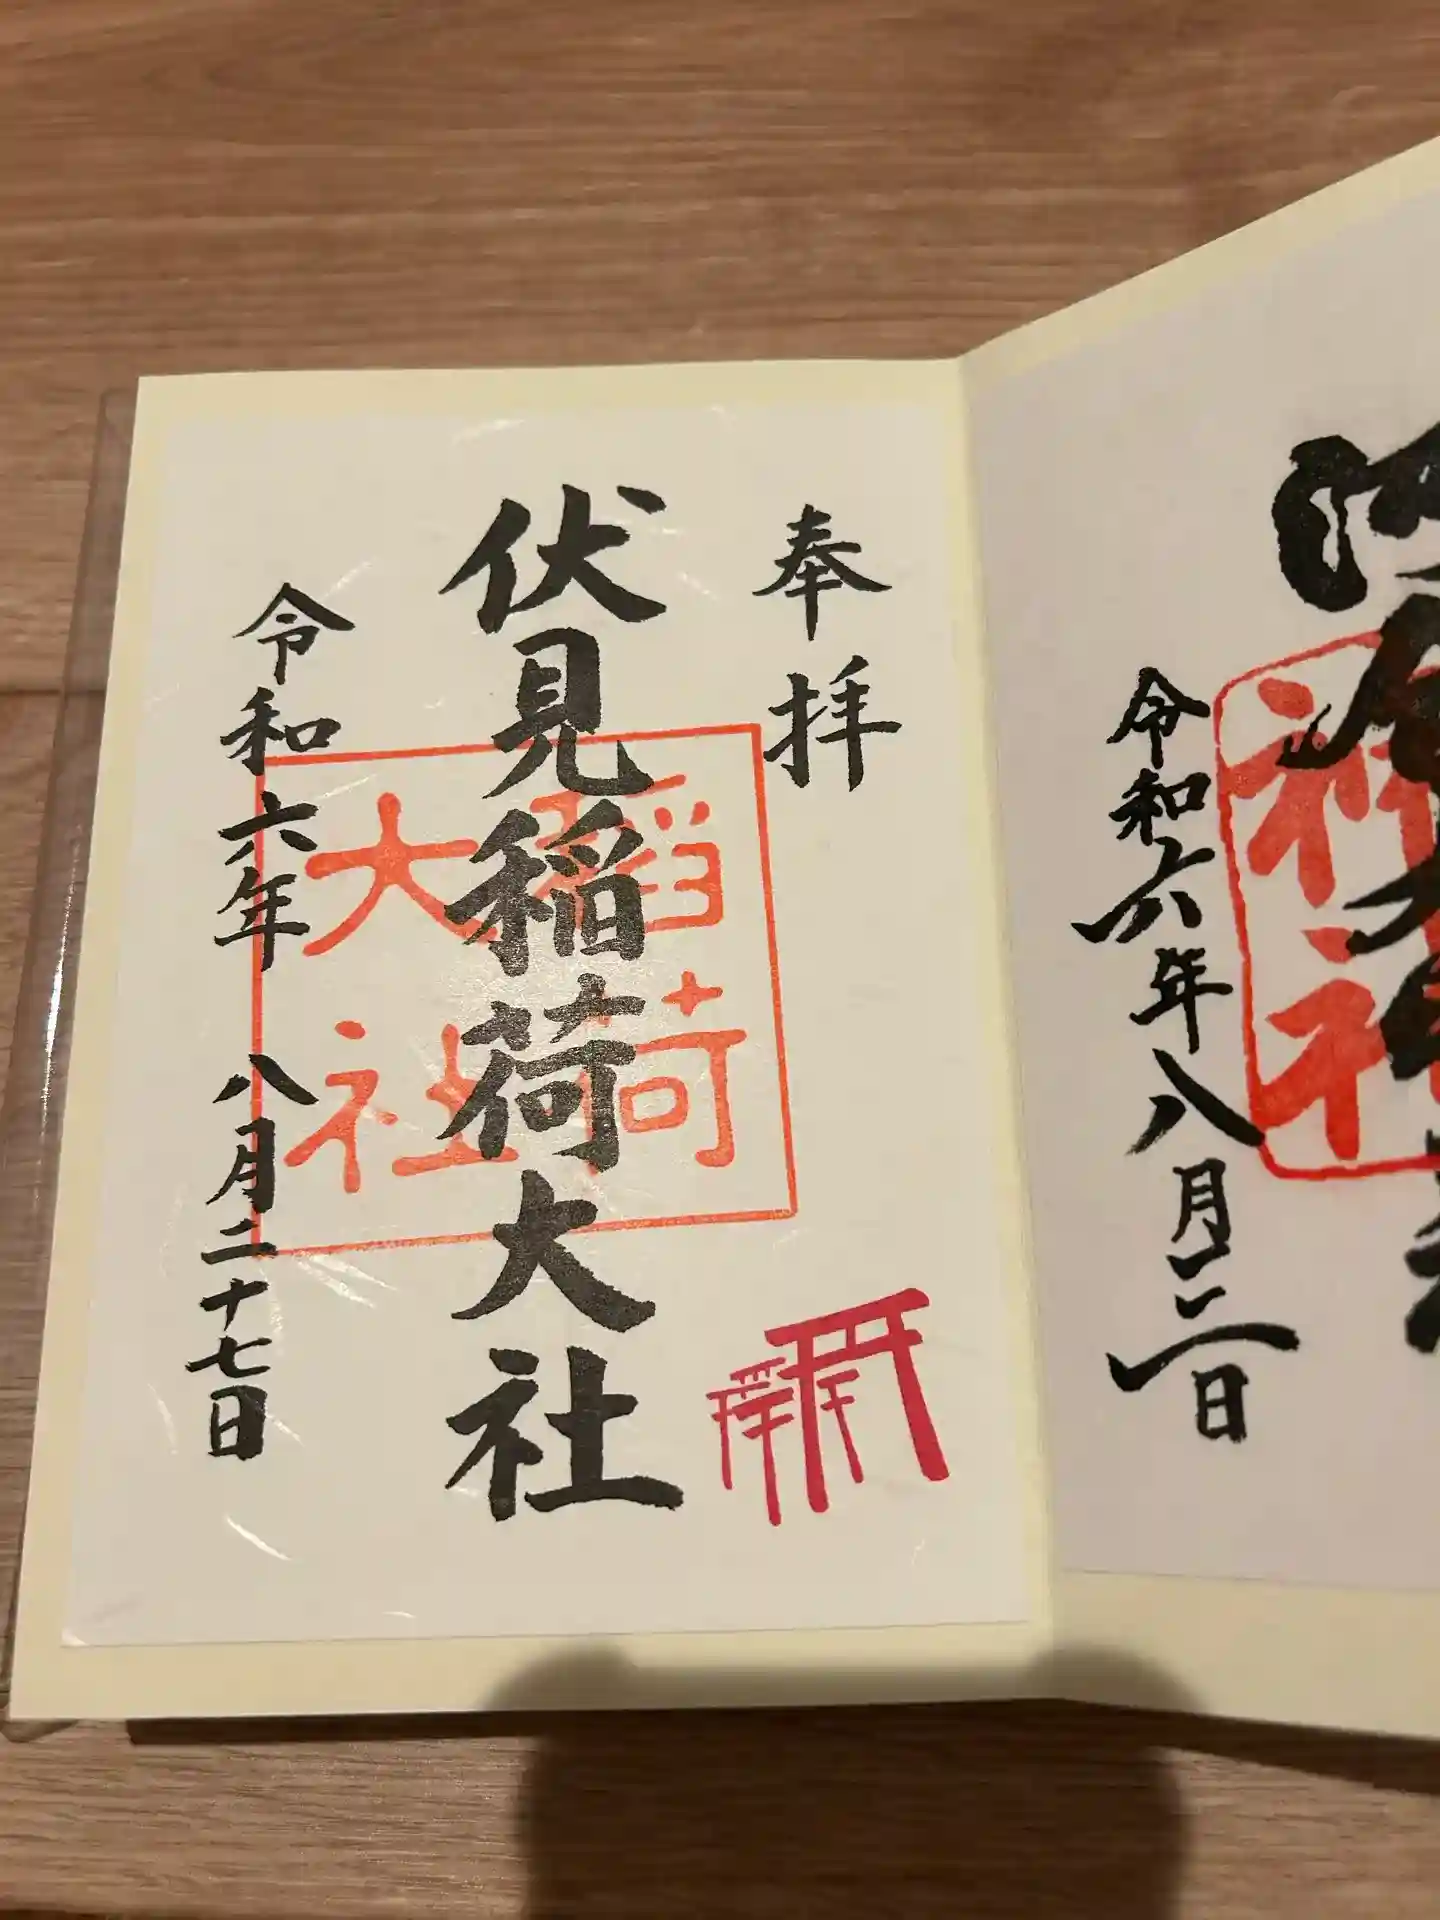 令和六年八月二日
奉拝
伏見稲荷大社
稲荷
大社
令和六年 八月二十七日